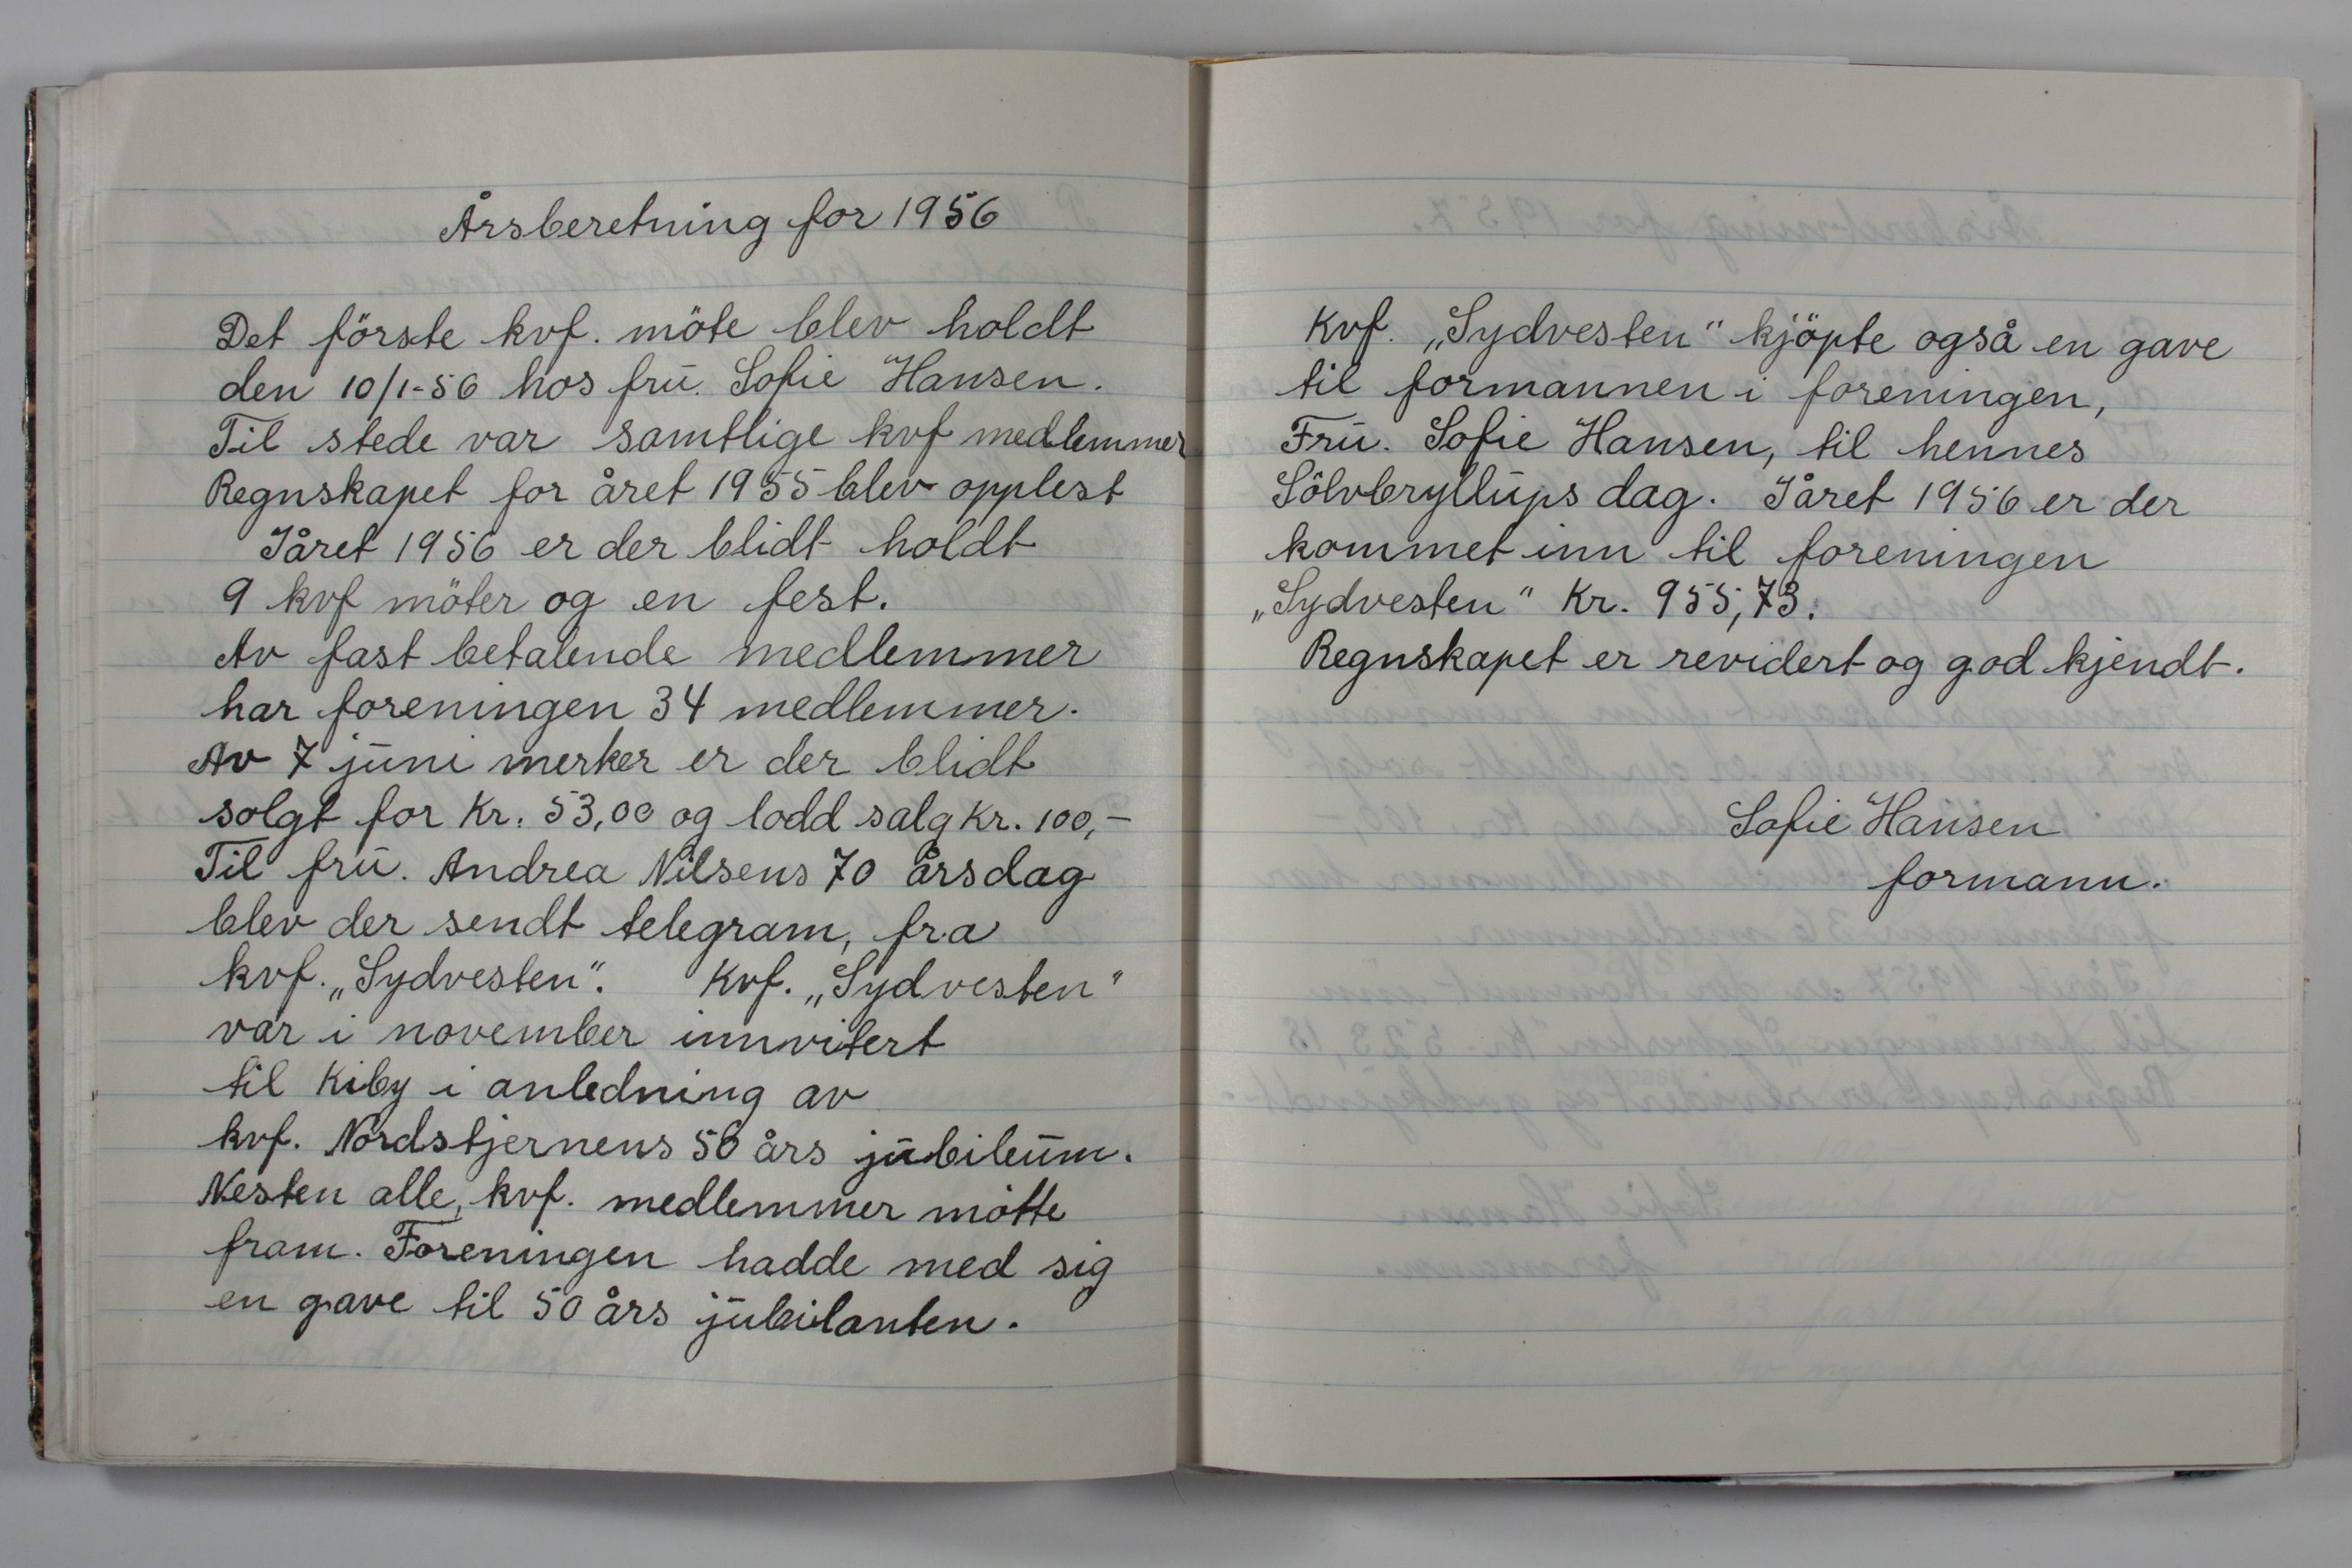 Årsberetning for 1956
Det förste kvf. möte blev holdt
den 10/1-56 hos frū. Sofie Hansen.
Til stede var samtlige kvf medlemmer
Regnskapet for året 1955 blev opplest
Iåret 1956 er der blidt holdt
9 kvf möter og en fest.
Av fast betalende medlemmer
har foreningen 34 medlemmer.
Av 7 jūni merker er der blidt
solgt for Kr. 53,00 og lodd salg Kr. 100,-
Til frū. Andrea Nilsens 70 årsdag
blev der sendt telegram, fra
kvf. „Sydvesten“. Kvf. „Sydvesten“
var i november innvitert
til Kiby i anledning av
kvf. Nordstjernens 50 års jūbileūm.
Nesten alle, kvf. medlemmer mötte
fram. Foreningen hadde med sig
en gave til 50 års jūbilanten.
Kvf. „Sydvesten“ kjöpte også en gave
til formannen i foreningen,
Frū. Sofie Hansen, til hennes
Sölvbryllūps dag. Iåret 1956 er der
kommet inn til foreningen
„Sydvesten“ Kr. 955,73.
Regnskapet er revidert og god kjendt.
Sofie Hansen
formann.